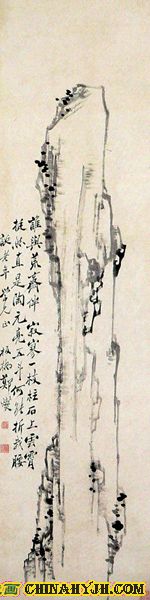 誰與荒齋伴寂寥一枝柱石上雲霄
挺然直是陶元亮五斗何能折我腰
老年學兄正 板橋鄭燮
画 CHINAHYJH.COM